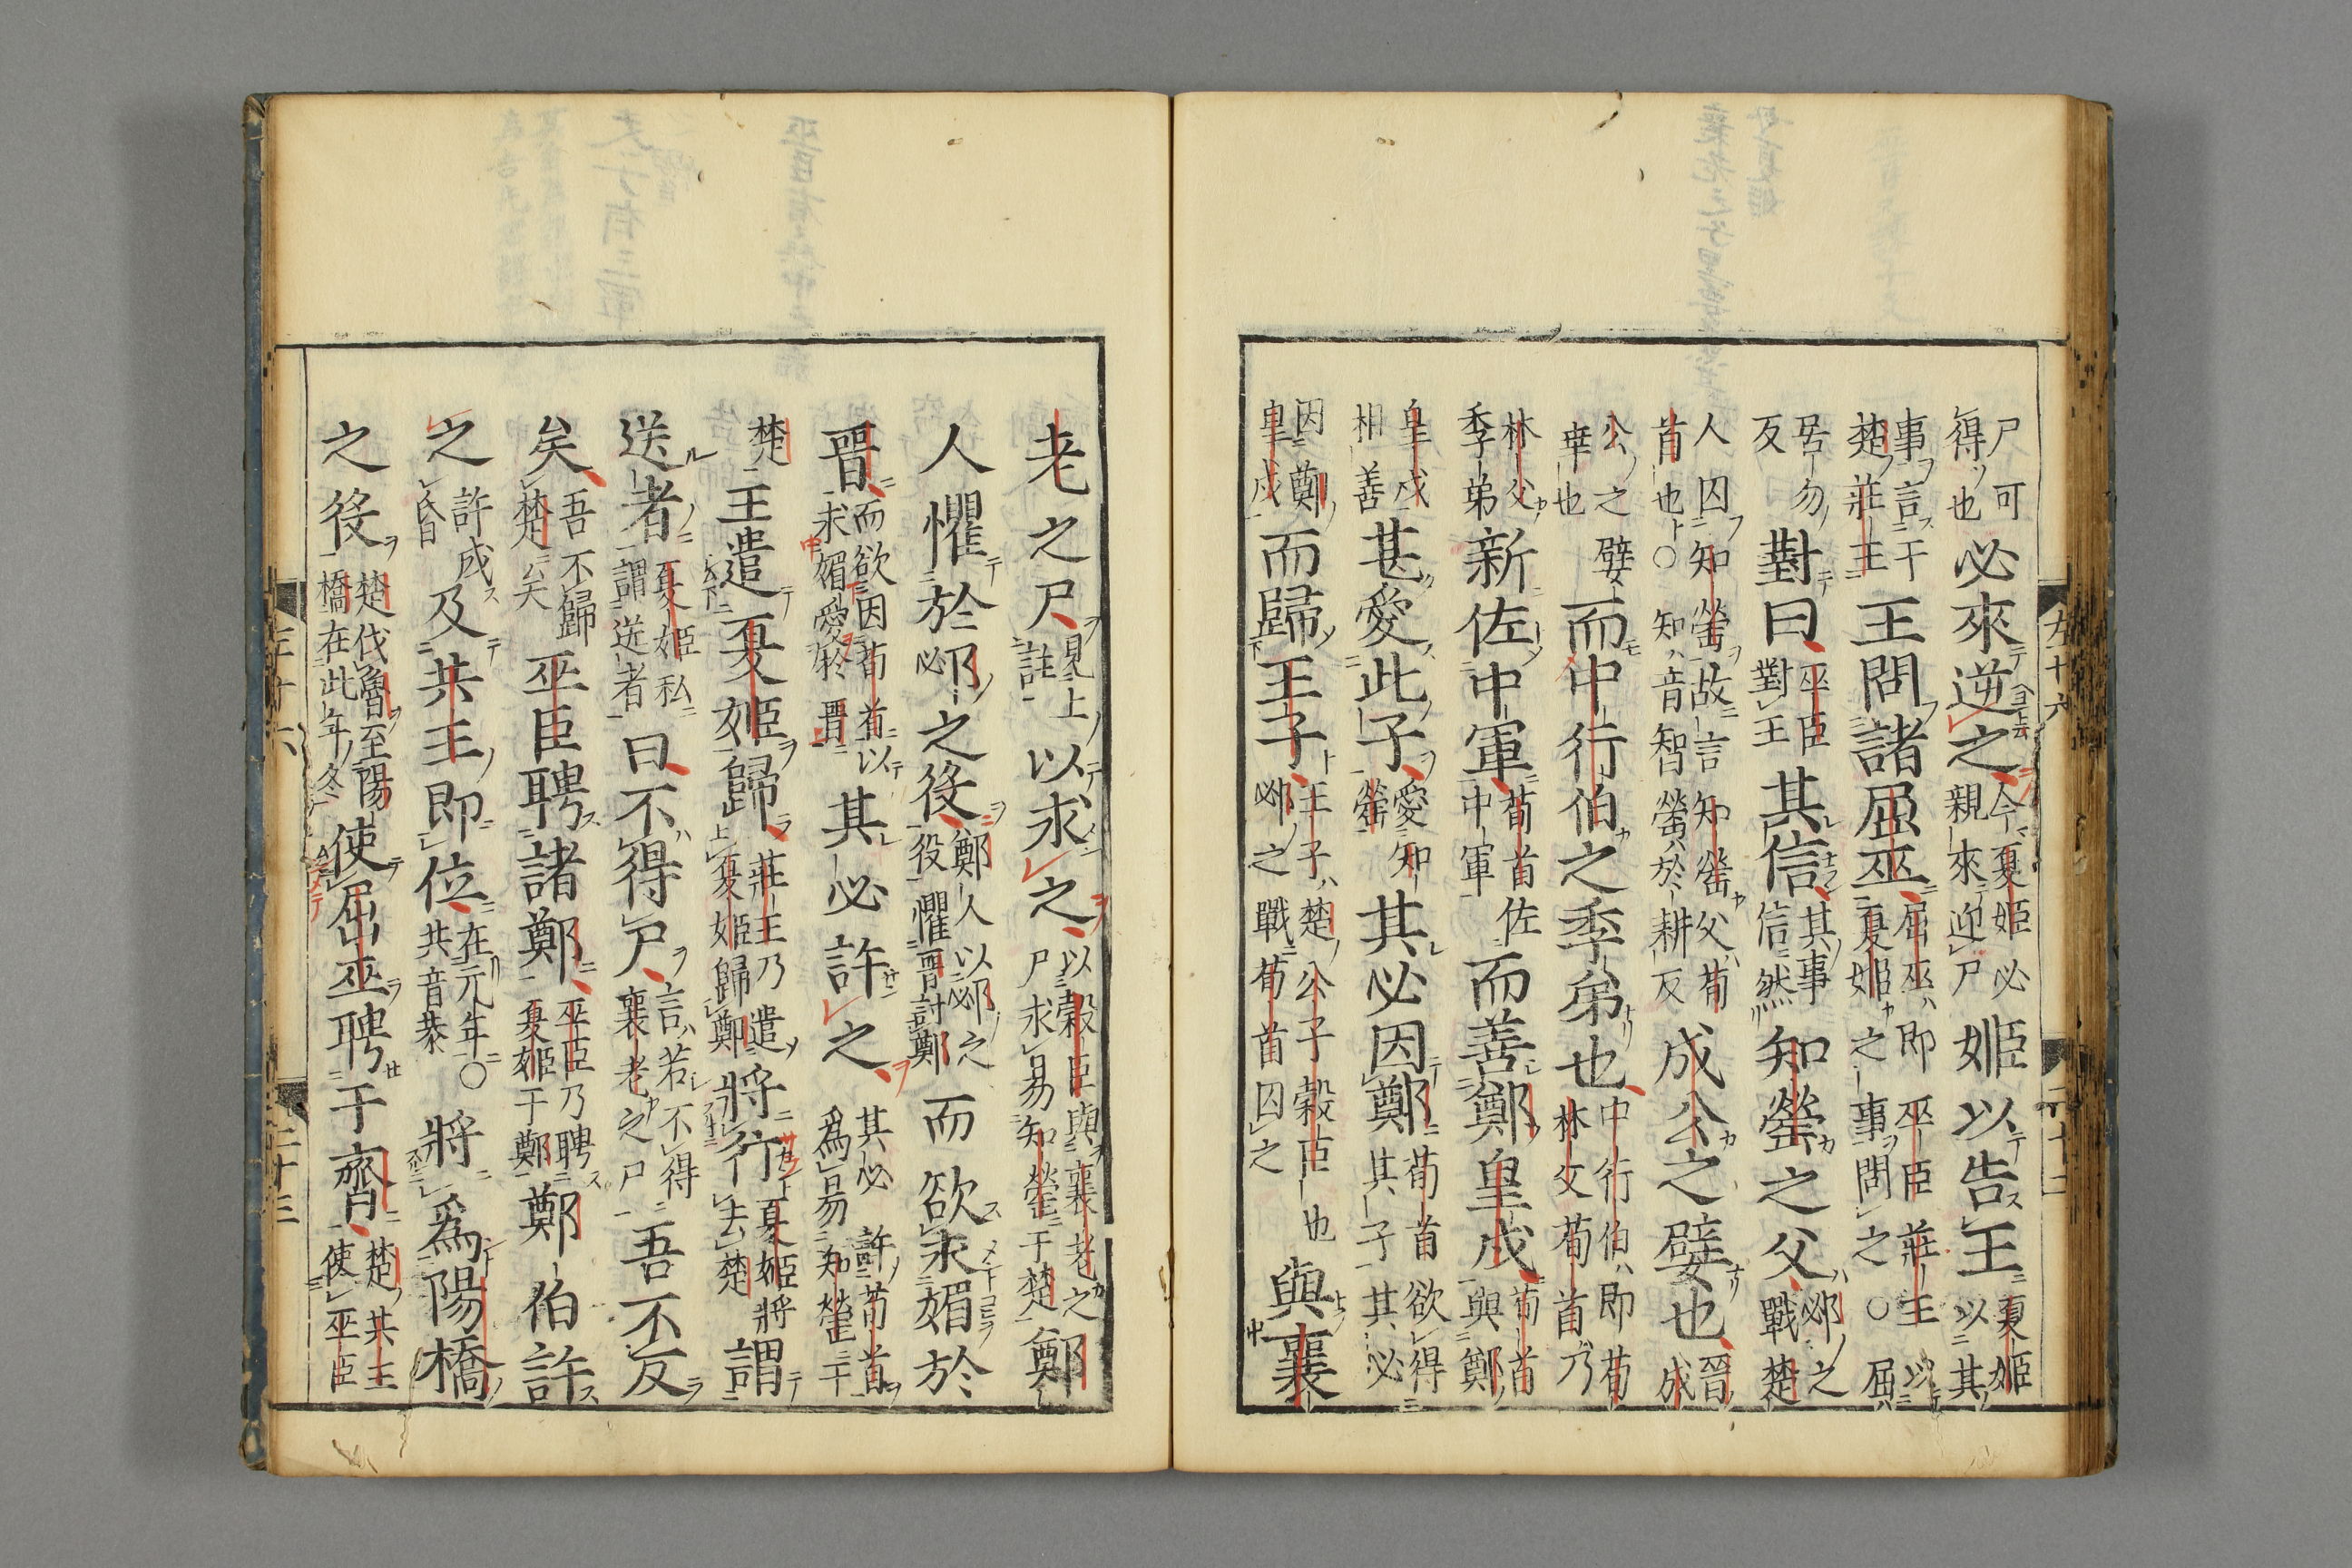 左十六 二十二
尸可得也必來逆之今夏姬必親來迎尸姬以告王夏姬以其
事言于楚莊王王問諸屈巫屈巫即巫臣莊王以夏姬之事問之○屈
居勿反對曰巫臣對王其信其事信然知罃之父邲之戰楚
人囚知罃故言知罃父荀首也○知音智罃於耕反成公之嬖也晉成
公之嬖幸也而中行伯之季弟也中行伯即荀林父荀首乃
林父季弟新佐中軍荀首佐中軍而善鄭皇戌荀首與鄭
皇戌相善甚愛此子愛知罃其必因鄭荀首欲得其子其必
因鄭皇戌而歸王子王子楚公子穀臣也邲之戰荀首囚之與襄
老之尸見上註以求之以穀臣與襄老之尸求易知罃于楚鄭
人懼於邲之役鄭人以邲之役懼晉討鄭而欲求媚於
晉而欲因荀首以求媚愛於晉其必許之其必許荀首爲易知罃于
楚王遣夏姬歸莊王乃遣夏姬歸鄭將行夏姬將去楚謂
送者夏姬私謂送者曰不得尸言若不得襄老之尸吾不反
矣吾不歸楚矣巫臣聘諸鄭巫臣乃聘夏姬于鄭鄭伯許
之許成昏及共王即位在元年○共音恭將爲陽橋
之役楚伐魯至陽橋在此年冬使屈巫聘于齊楚共王使巫臣
二十三